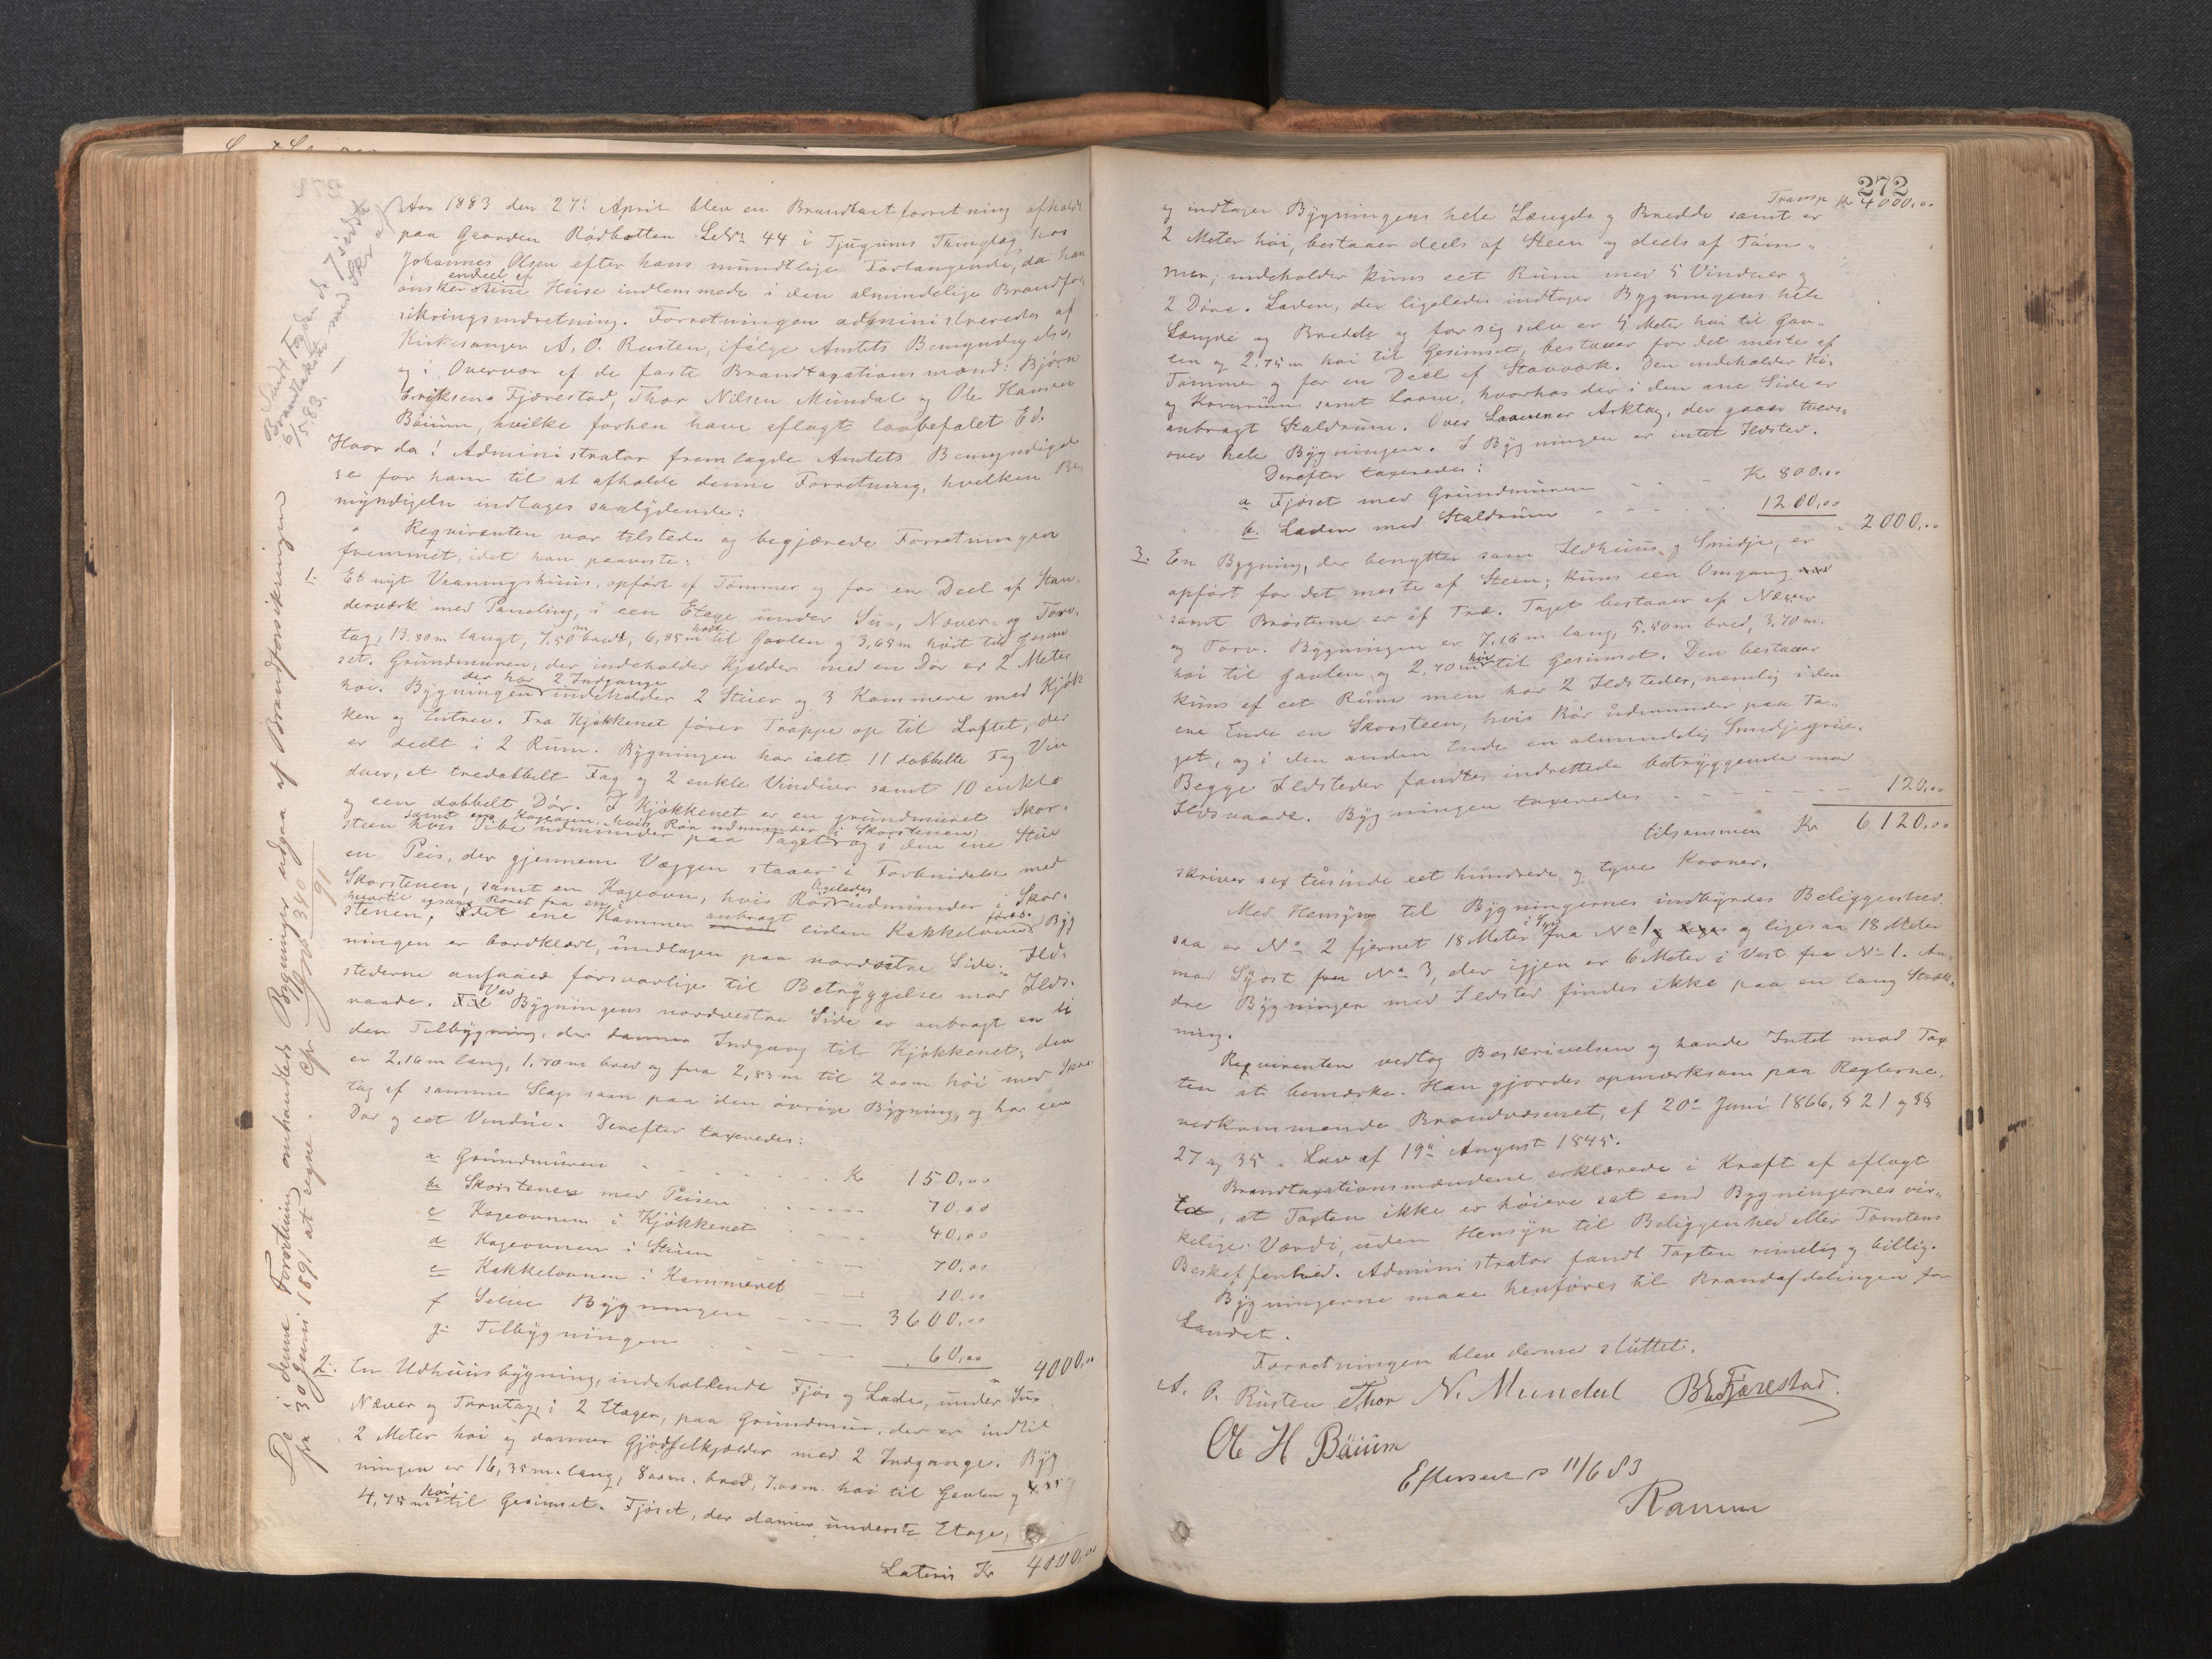 Aar 1883 den 27: April blev en Brandtaxtforretning afholdt
paa Gaarden Rødbotten LeNr 44 i Tjugums Thinglag, hos
Johannes Olsen efter hans mundtlige Forlangende, da han
ønsker endeel af sine Huse indlemmede i den almindelige Brandfor
sikringsindretning. Forretningen administreredes af
Kirkesanger A. O. Rusten, ifølge Amtets Bemyndigelse,
og i Overvær af de faste Brandtaxationsmænd: Bjørn
Eriksen Fjærestad, Thor Nilsen Mundal og Ole Hansen
Bøium, hvilke forhen have aflagt lovbefalet Ed.
Hvor da! Administrator fremlagde Amtets Bemyndigel
se for ham til at afholde denne Forretning, hvilken Be
myndigelse indtages saalydende:
Requirenten var tilstede og begjærede Forretningen
fremmet, idet han paaviste:
1. Et nyt Vaaningshuus, opført af Tømmer og for en Deel af Stan-
derværk med Paneling, i een Etage under Su-, Næver- og Torv-
tag, 13.80m langt, 7,50m bredt, 6,85m høit til Gavlen og 3,65m høit til Gesim
set. Grundmuren, der indeholder Kjelder med en Dør er 2 Meter
høi. Bygningen der har 2 Indgange indeholder 2 Stuer og 3 Kammere med Kjøk
ken og Entree. Fra Kjøkkenet fører Trappe op til Loftet, der
er deelt i 2 Rum. Bygningen har ialt 11 dobbelte Fag Vin
duer, et tredobbelt Fag og 2 enkle Vinduer samt 10 enkle
og een dobbelt Dør. I Kjøkkenet er en grundmuret Skor-
steen hvis Pibe udmunder paa Taget samt en Kogeovn, hvis Rør udmunder i Skorstenen; og i den ene Stue
en Peis, der gjennem Væggen staaer i Forbindelse med
Skorstenen, samt en Kogeovn, hvis Rør ligeledes udmunder i Skor-
stenen, hvortil ogsaa Røret fra en i det ene Kammer anbragt liden Kakkelovn føres. Byg
ningen er bordklædt, undtagen paa nordøstre Side. Ild-
stederne ansaaes forsvarlige til Betryggelse mod Ilds-
vaade. Ved Bygningens nordvestre Side er anbragt en li
den Tilbygning, der danner Indgang til Kjøkkenet; den
er 2.16m lang, 1.70m bred og fra 2,83m til 2,00m høi med Skraa
tag af samme Slags som paa den øvrige Bygning, og har een
Dør og eet Vindue. Derefter taxeredes:
a Grundmuren Kr 150,00
b. Skorstenen med Peisen 70,00
c Kogeovnen i Kjøkkenet 40,00
d Kogeovnen i Stuen 70,00
e Kakkelovnen i Kammeret 10,00
f Selve Bygningen 3600,00
g: Tilbygningen 60,00
4000,00
2: En Udhuusbygning, indeholdende Fjøs og Lade, under Su-
Næver og Torvtag, i 2 Etager, paa Grundmuur, der er indtil
2 Meter høi og danner Gjødselkjælder med 2 Indgange. Byg
ningen er 16,35m. lang, 8.00m. bred, 7.00m. høi til Gavlen og
4,75m høi til Gesimset. Fjøset, der danner underste Etage,
Lateris Kr 4000,00
Sendt Fogden de 7 sidste
Brandtakster med Skr af
6/5.83.
De i denne Forretning omhandlede Bygninger udgaa af Brandforsikringen
fra 30 Juni 1891 at regne. Cfr Jnr 340/91
272
Transp Kr 4000,00
og indtager Bygningens hele Længde og Bredde samt er
2 Meter høi, bestaaer deels af Steen og deels af Tøm-
mer; indeholder kuns eet Rum med 5 Vinduer og
2 Døre. Laden, der ligeledes indtager Bygningens hele
Længde og Bredde og for sig selv er 5 Meter høi til Gav-
len og 2.75m høi til Gesimset, bestaaer for det meste af
Tømmer og for en Deel af Stavværk. Den indeholder Hø-
og Kornrum samt Laave, hvorhos der i den ene Side er
anbragt Staldrum. Over Laaven er Arktag, der gaaer tvers-
over hele Bygningen. I Bygningen er intet Ildsted.
Derefter taxeredes:
a Fjøset med Grundmuren Kr 800,00
b. Laden med Staldrum 1200,00
2000,00
3. En Bygning, der benyttes som Ildhuus og Smidje, er
opført for det meste af Steen; kuns een Omgang
samt Brøstene er af Træ. Taget bestaaer af Næver
og Torv. Bygningen er 7,16m lang, 5.50m bred, 3,70m.
høi til Gavlen og 2,70m høi til Gesimset. Den bestaaer
kuns af eet Rum men har 2 Ildsteder, nemlig i den
ene Ende en Skorsteen, hvis Rør udmunder paa Ta-
get, og i den anden Ende en almindelig Smidjegrue.
Begge Ildsteder fandtes indrettede betryggende mod
Ildsvaade. Bygningen taxeredes 120,00
tilsammen Kr 6120,00
skriver sex tusinde eet hundrede og tyve Kroner.
Med Hensyn til Bygningernes indbyrdes Beliggenhed
saa er No 2 fjernet 18 Meter i Syd fra No 1 og ligesaa 18 Meter
mod Syost fra No 3, der igjen er 6 Meter i Vest fra No 1. An-
dre Bygninger med Ildsted findes ikke paa en lang Stræk-
ning.
Requirenten vedtog Beskrivelsen og havde Intet mod Tax
ten at bemærke. Han gjordes opmærksom paa Reglerne,
vedkommende Brandvæsenet, af 20de Juni 1866, § 21 og §§
27 og 35 i Lov af 19de August 1845.
Brandtaxationsmændene erklærede i Kraft af aflagt
Ed, at Taxten ikke er høiere sat end Bygningernes vir-
kelige Værdi, uden Hensyn til Beliggenhed eller Tomtens
Beskaffenhed. Administrator fandt Taxten rimelig og billig.
Bygningerne maae henføres til Brandafdelingen for
Landet.
Forretningen blev dermed sluttet.
A. O. Rusten Thor N. Mundal B. E. Fjærestad.
Ole H Bøium
Efterseet d 11/6 83
Ramm